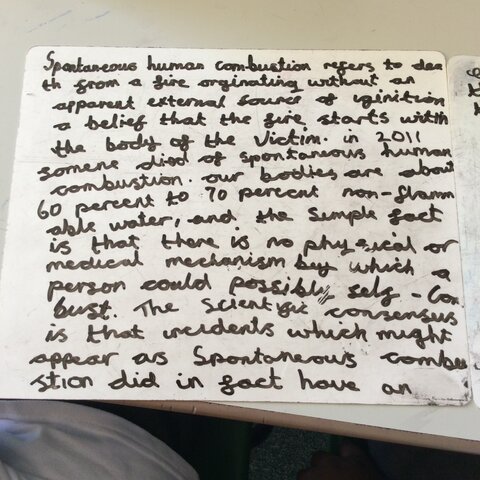 Spontaneous human combustion refers to dea
th from a fire orginating without an
apparent external source of iginition
a belief that the fire starts within
the body of the victim. in 2011
somene died of spontaneous human
combustion. our bodies are about
60 percent to 70 percent non-flamm
able water, and the simple fact
is that there is no physical or
medical mechanism by which a
person could possibly self-com
bust. The scientific consensus
is that incidents which might
appear as Spontaneous combu
stion did in fact have an